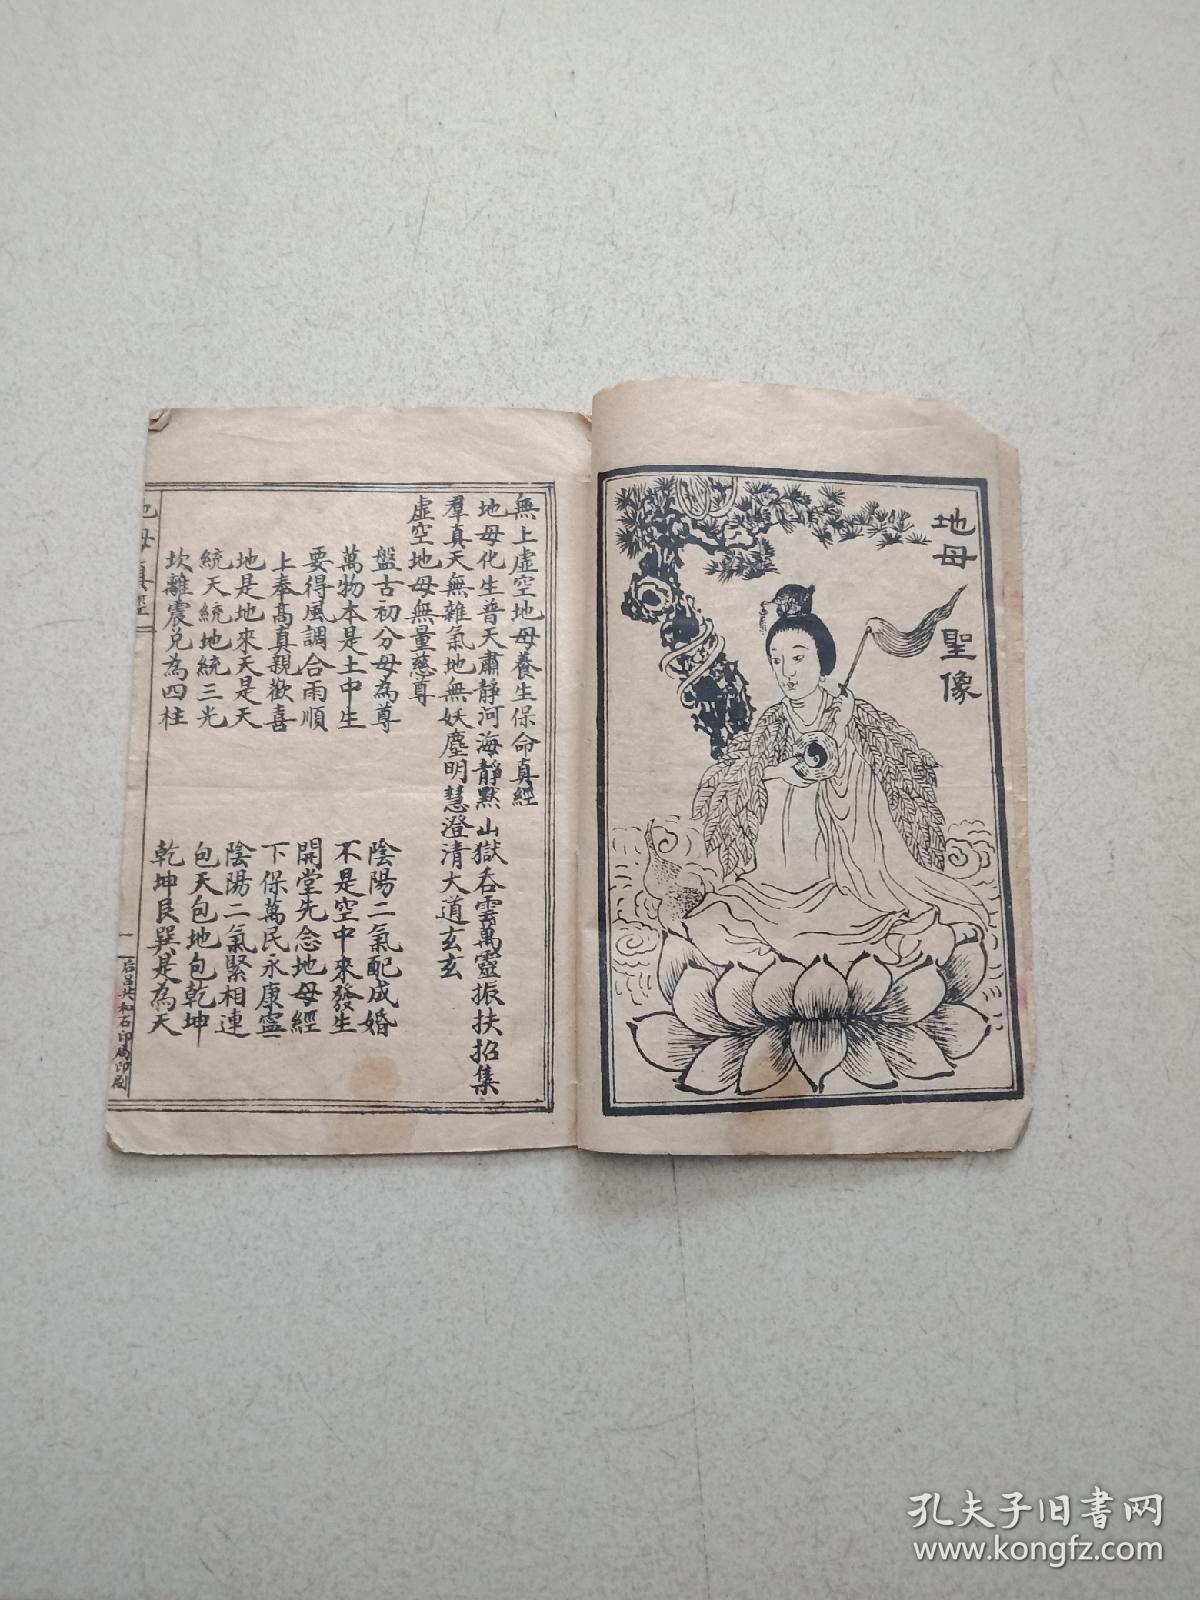 地母 聖像
無上虛空地母養生保命真經
地母化生普天肅靜河海靜默山獄吞雲萬靈振扶招集
羣真天無雜氣地無妖塵明慧澄清大道玄玄
虛空地母無量慈尊
盤古初分母為尊 陰陽二氣配成婚
萬物本是土中生 不是空中來發生
要得風調合雨順 開堂先念地母經
上奉高真親歡喜 下保萬民永康寧
地是地來天是天 陰陽二氣緊相連
統天統地統三光 包天包地包乾坤
坎離震兌為四柱 乾坤艮巽是為天
地母真經
一
共和石印局印刷
孔夫子旧书网
www.kongfz.com